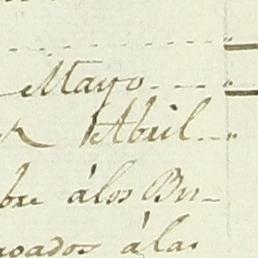 Mayo
Abril
bre álos Bu-
gados álas